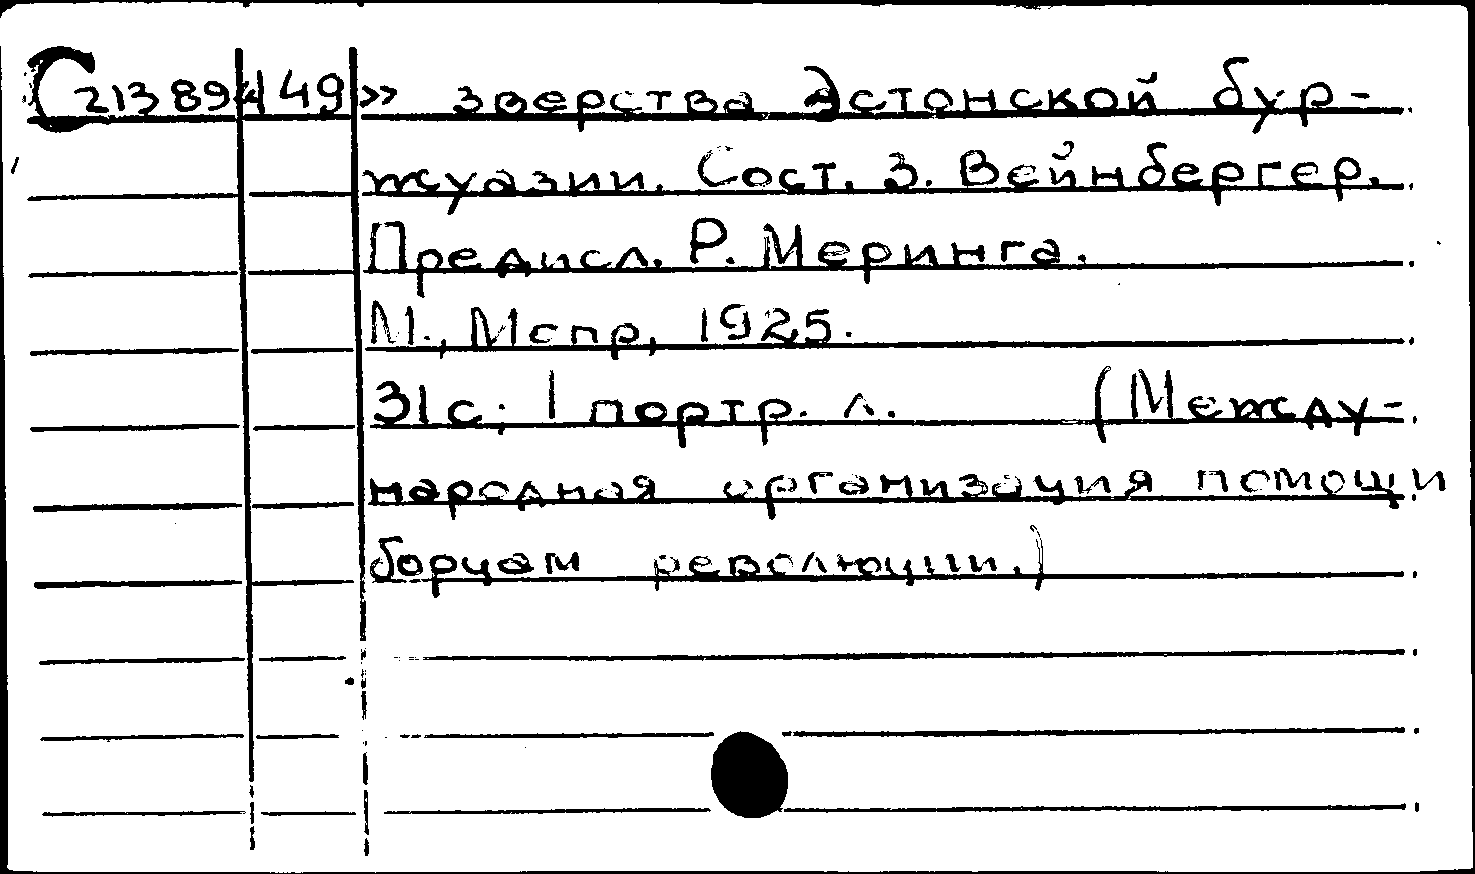 С21389 «149» зверства Эстонской бур-
жуазии. Сост. З. Вейнбергер.
Предисл. Р. Меринга.
М., Мопр, 1925.
31с; 1 портр. л. (Между-
народная организация помощи
борцам революции.)